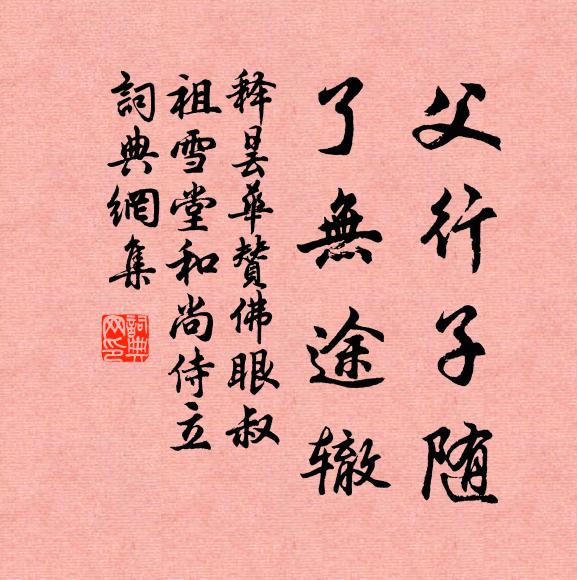 父行子随
了無途辙
释昙華贊佛眼叔
祖雪堂和尚侍立
詞典網集
詞典网印